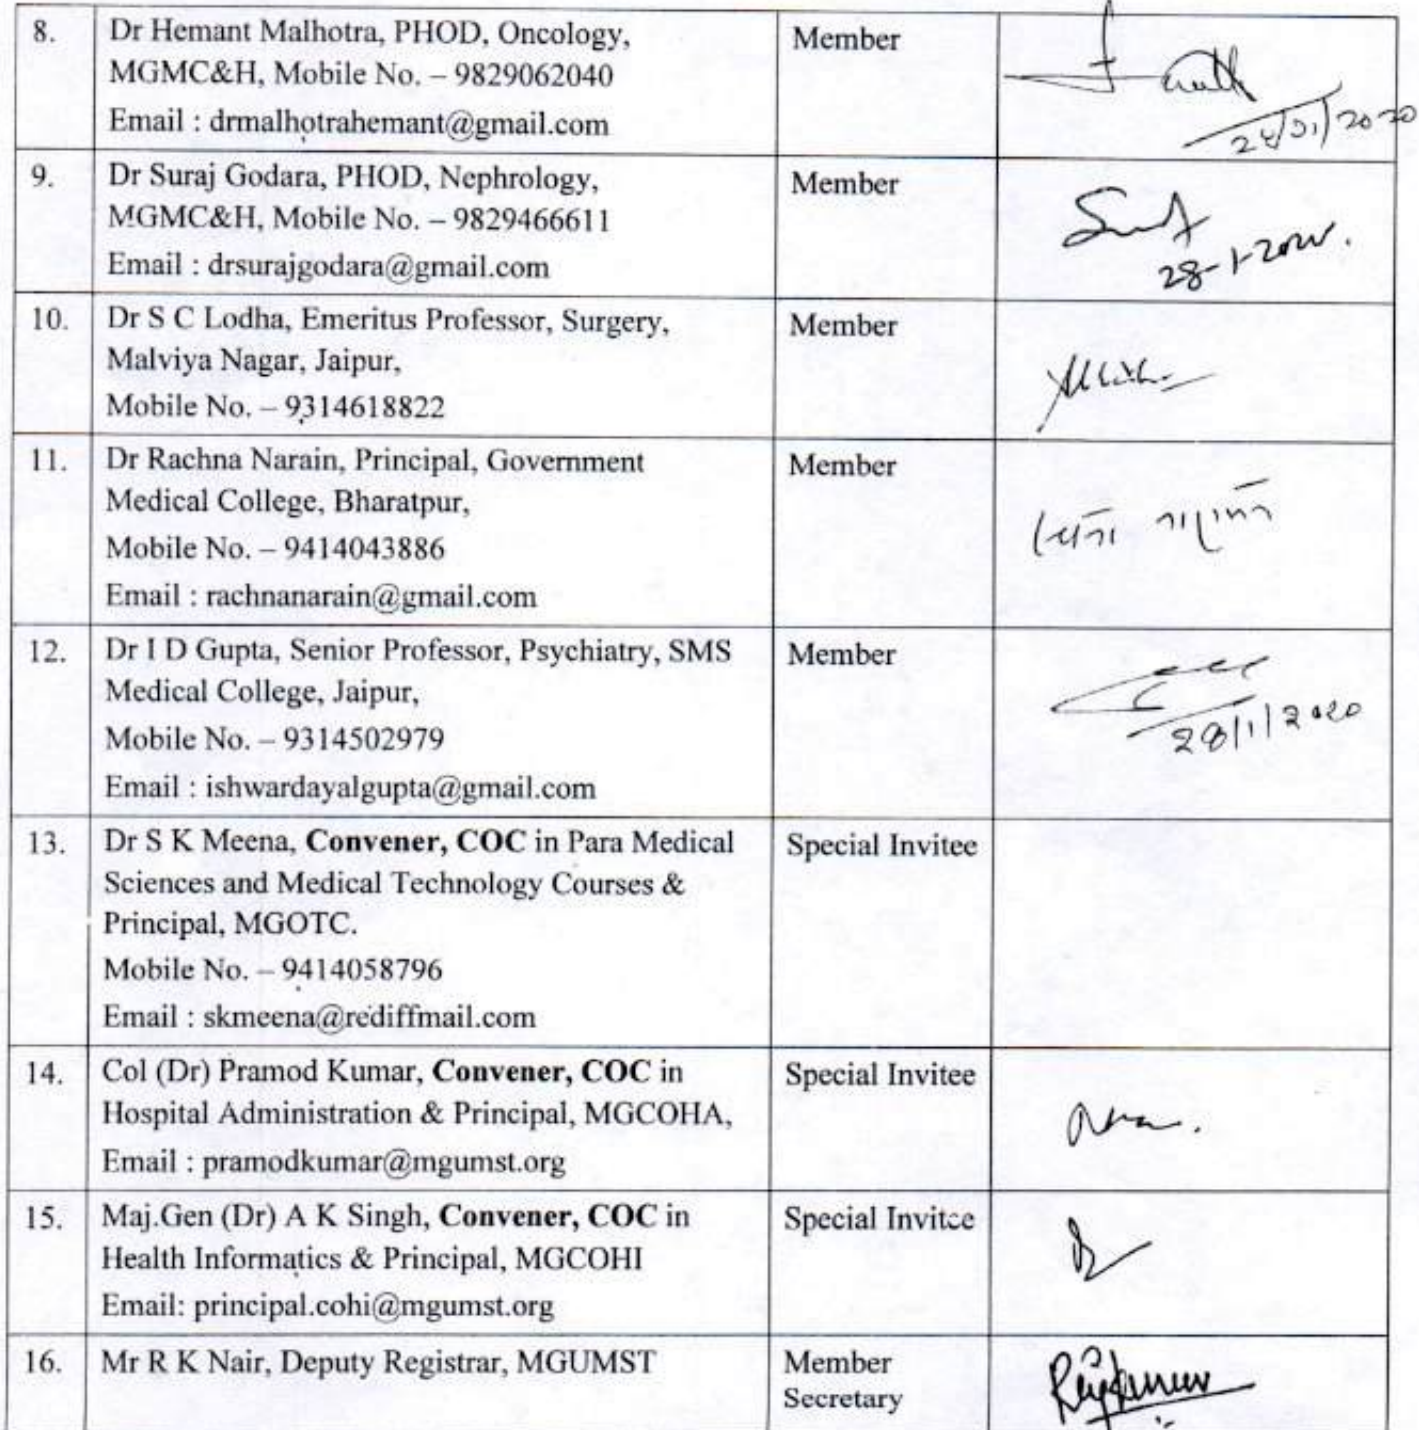 8.
Dr Hemant Malhotra, PHOD, Oncology,
MGMC&H, Mobile No. – 9829062040
Email : drmalhotrahemant@gmail.com
Member
9.
Dr Suraj Godara, PHOD, Nephrology,
MGMC&H, Mobile No. – 9829466611
Email : drsurajgodara@gmail.com
Member
10.
Dr S C Lodha, Emeritus Professor, Surgery,
Malviya Nagar, Jaipur,
Mobile No. – 9314618822
Member
11.
Dr Rachna Narain, Principal, Government
Medical College, Bharatpur,
Mobile No. – 9414043886
Email : rachnanarain@gmail.com
Member
12.
Dr I D Gupta, Senior Professor, Psychiatry, SMS
Medical College, Jaipur,
Mobile No. – 9314502979
Email : ishwardayalgupta@gmail.com
Member
28/1/2020
13.
Dr S K Meena, Convener, COC in Para Medical
Sciences and Medical Technology Courses &
Principal, MGOTC.
Mobile No. – 9414058796
Email : skmeena@rediffmail.com
Special Invitee
14.
Col (Dr) Pramod Kumar, Convener, COC in
Hospital Administration & Principal, MGCOHA,
Email : pramodkumar@mgumst.org
Special Invitee
15.
Maj.Gen (Dr) A K Singh, Convener, COC in
Health Informatics & Principal, MGCOHI
Email: principal.cohi@mgumst.org
Special Invitee
16.
Mr R K Nair, Deputy Registrar, MGUMST
Member
Secretary